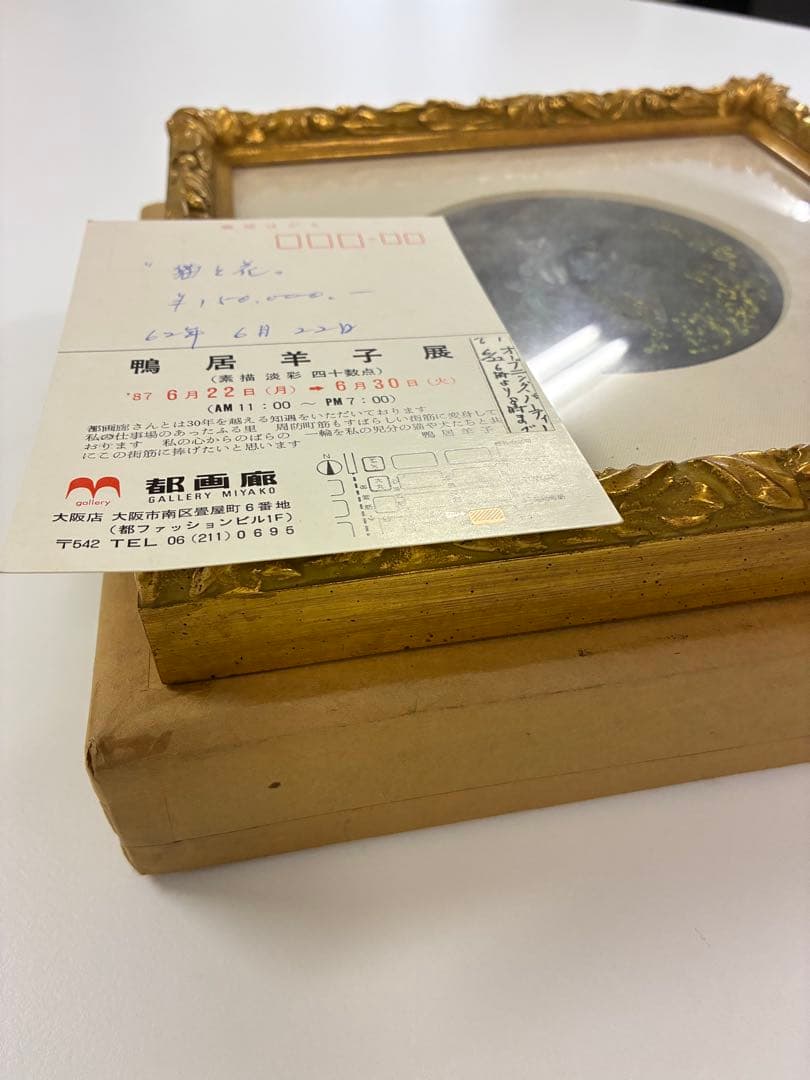 郵便はがき
"猫と花。
¥150,000.-
62年 6月 22日
鴨居羊子展
(素描 淡彩 四十数点)
'87 6月22日(月)➡6月30日(火)
(AM11:00 ~ PM7:00)
都画廊さんとは30年を越える知遇をいただいております
私の仕事場のあったふる里 周防町筋もすばらしい街筋に変身して
おります 私の心からのばらの一輪を私の児分の猫や犬たちと共
にこの街筋に捧げたいと思います
鴨居羊子
オープニングパーティー
6/22 6時より8時まで
N
gallery
都画廊
GALLERY MIYAKO
大阪店 大阪市南区畳屋町6番地
(都ファッションビル1F)
〒542 TEL 06(211)0695